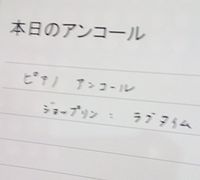 本日のアンコール
ピアノ アンコール
ジョープリン : ラグタイム